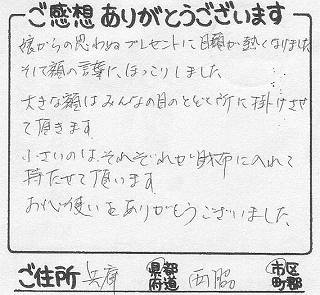 ご感想 ありがとうございます
娘からの思わぬプレゼントに目頭が熱くなりました
そして額の言葉に、ほっこりしました。
大きな額はみんなの目のとどく所に掛けさせ
て頂きます
小さいのは、それぞれが財布に入れて
持たせて頂います
お心使いをありがとうございました。
ご住所 兵庫 都道府県 西脇 市区町郡